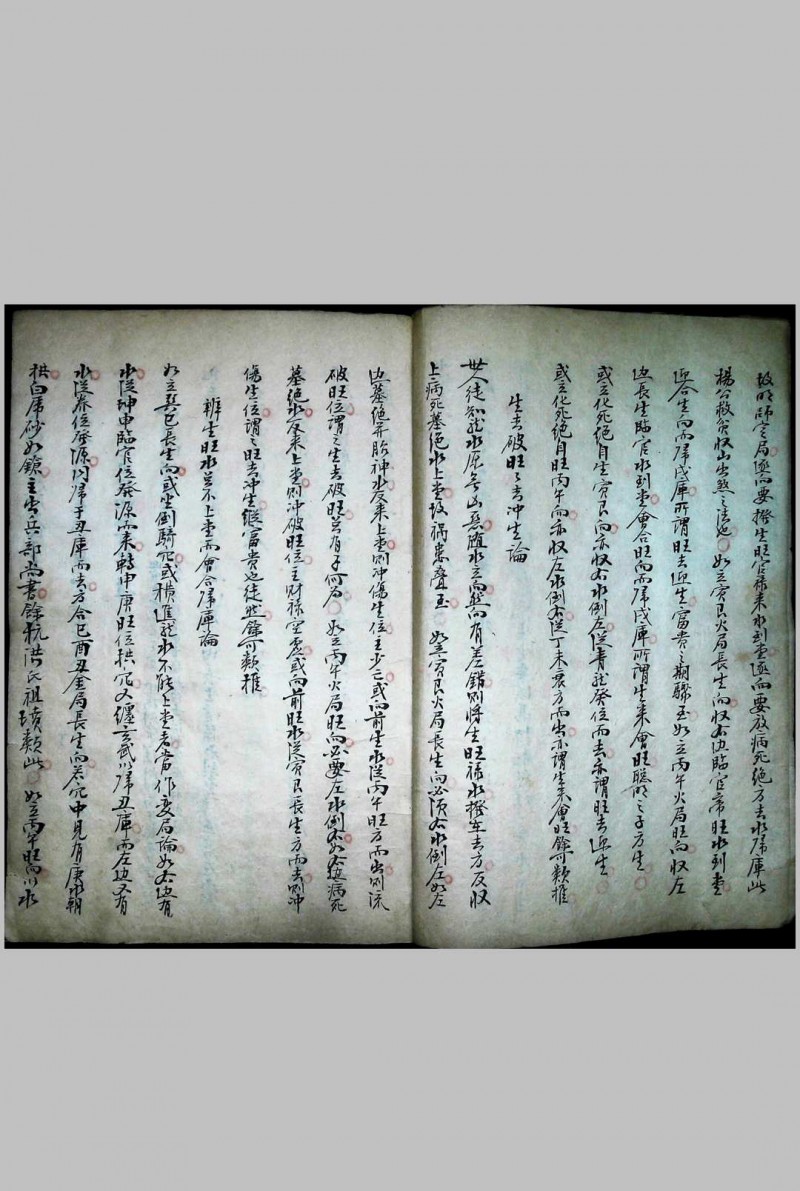 故明師定局逐向要撥生旺官祿來水到堂逐向要放病死絕方去水歸庫此
楊公救貧収山出煞之法也 如立寅艮火局長生向収右边臨官帝旺水到堂
迎合生向而歸戌庫所謂旺去迎生富貴之期驟至如立丙午火局旺向収左
边長生臨官水到堂會合旺向而歸戌庫所謂生來會旺聰明之子方生
或立化死絕自生寅艮向亦収右水倒左從青龍癸位而去亦謂旺去迎生
或立化死絕自旺丙午向亦収左水倒右從丁未衰方而出亦謂生來會旺餘可類推
生去破旺旺去冲生論
世人徒知龍水原無山兼隨水立向無向有差錯則將生旺祿水撥在去方反収
上病死墓絕水上堂故禍患疊至 如立寅艮火局長生向必須右水倒左如左
边墓絕并胎神水反來上堂則冲傷生位主少亡或向前生水從丙午旺方而出則流
破旺位謂之生去破旺兽有子何為 如立丙午火局旺向必要左水倒右如右边病死
墓絕水反來上堂則冲破旺位主財祿空虛或向前旺水從寅艮長生方而去則冲
傷生位謂之旺去冲生縱富貴也徒然餘可類推
辨生旺水並不上堂而會合歸庫論
如立巽巳長生向或坐倒騎穴或橫進龍水不能上堂者當作变局論如右边有
水從坤申臨官位發源而來轉申庚旺位拱穴又纏玄武以歸丑庫而左边又有
水從养位發源以歸于丑庫而去方合巳酉丑金局長生向若穴中見有庚水朝
拱白虎砂如鎗主出兵部尚書餘杭洪氏祖墳類此 如立丙午旺向以水